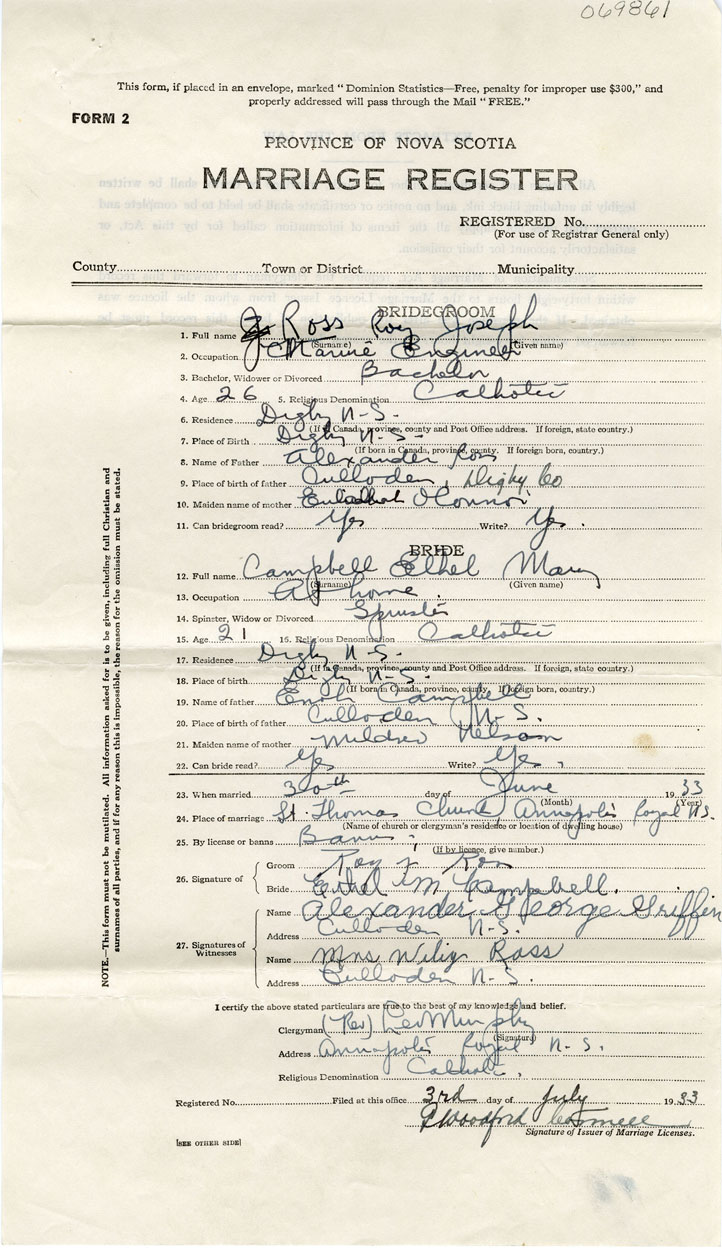 069861
This form, if placed in an envelope, marked "Dominion Statistics—Free, penalty for improper use $300," and
properly addressed will pass through the Mail "FREE."
FORM 2
PROVINCE OF NOVA SCOTIA
MARRIAGE REGISTER
REGISTERED No.
(For use of Registrar General only)
County Town or District Municipality
BRIDEGROOM
1. Full name Ross Roy Joseph
(Surname) (Given name)
2. Occupation Marine Engineer
3. Bachelor, Widower or Divorced Bachelor
4. Age 26 5. Religious Denomination Catholic
6. Residence Digby N-S-
(If in Canada, province, county and Post Office address. If foreign, state country.)
7. Place of Birth Digby N-S-
(If born in Canada, province, county. If foreign born, country.)
8. Name of Father Alexander Ross
9. Place of birth of father Culloden, Digby Co
10. Maiden name of mother O'Connor
11. Can bridegroom read? Yes Write? Yes.
BRIDE
12. Full name Campbell Ethel Mary
(Surname) (Given name)
13. Occupation At home.
14. Spinster, Widow or Divorced Spinster
15. Age 21 16. Religious Denomination Catholic
17. Residence Digby N-S.
(If in Canada, province, county and Post Office address. If foreign, state country.)
18. Place of birth Digby N-S.
(If born in Canada, province, county. If foreign born, country.)
19. Name of father Campbell
20. Place of birth of father Culloden N-S.
21. Maiden name of mother Mildred Nelson
22. Can bride read? Yes Write? Yes.
23. When married 30th day of June 1933
(Month) (Year)
24. Place of marriage St. Thomas Church, Annapolis Royal N.S.
(Name of church or clergyman's residence or location of dwelling house)
25. By license or banns Banns
(If by licence, give number.)
26. Signature of
Groom Roy J. Ross
Bride Ethel M Campbell.
27. Signatures of Witnesses
Name Alexander George Griffin
Address Culloden N-S.
Name Mrs Ross
Address Culloden N-S.
I certify the above stated particulars are true to the best of my knowledge and belief.
Clergyman (Rev) Leo Murphy
(Signature)
Address Annapolis Royal N-S.
Religious Denomination Catholic.
Registered No. Filed at this office 3rd day of July 1933
Signature of Issuer of Marriage Licenses.
[SEE OTHER SIDE]
NOTE.—This form must not be mutilated. All information asked for is to be given, including full Christian and
surnames of all parties, and if for any reason this is impossible, the reason for the omission must be stated.